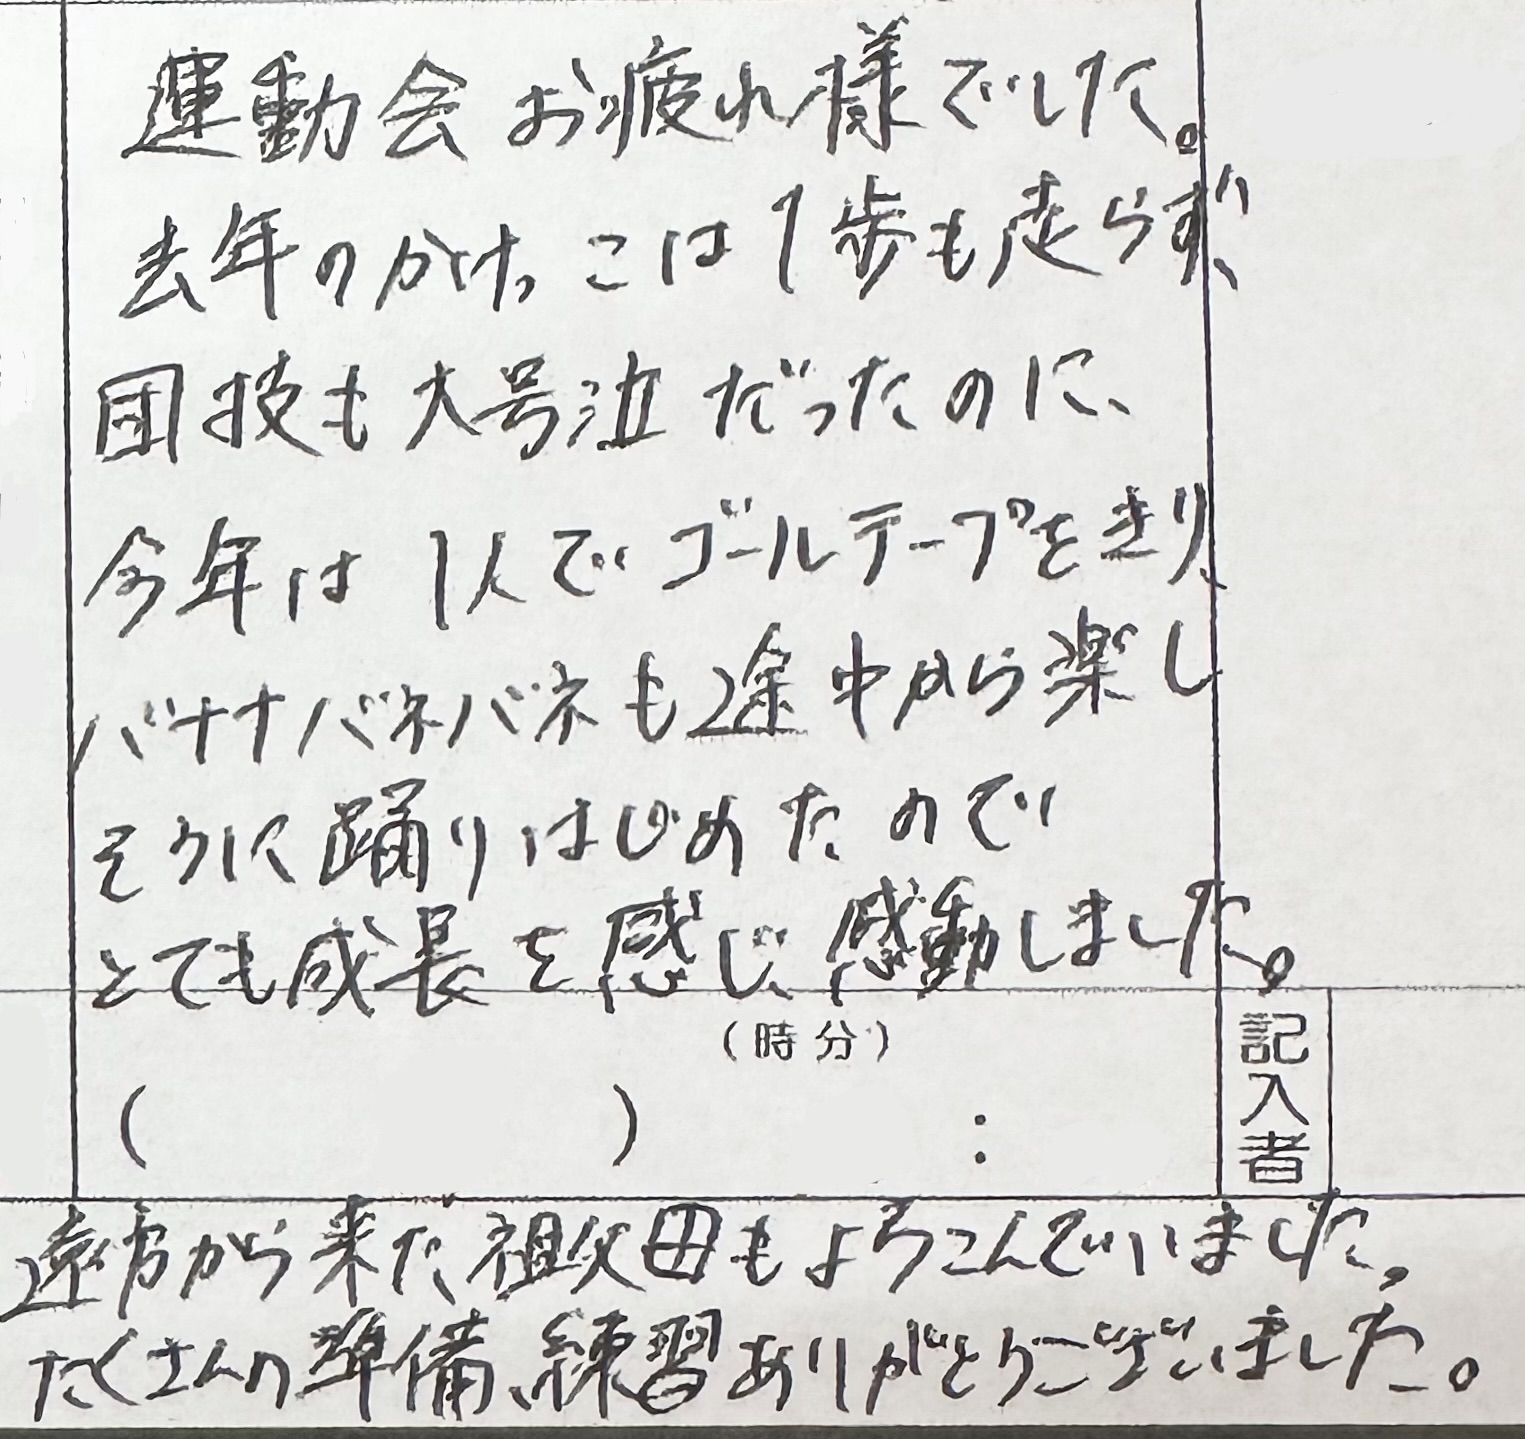 運動会お疲れ様でした。
去年のかけっこは1歩も走らず、
団技も大号泣だったのに、
今年は1人でゴールテープをきり、
バナナバネバネも途中から楽し
そうに踊りはじめたので
とても成長を感じ、感動しました。
(時分)
( ) :
記入者
遠方から来た祖父母もよろこんでいました。
たくさんの準備、練習ありがとうございました。